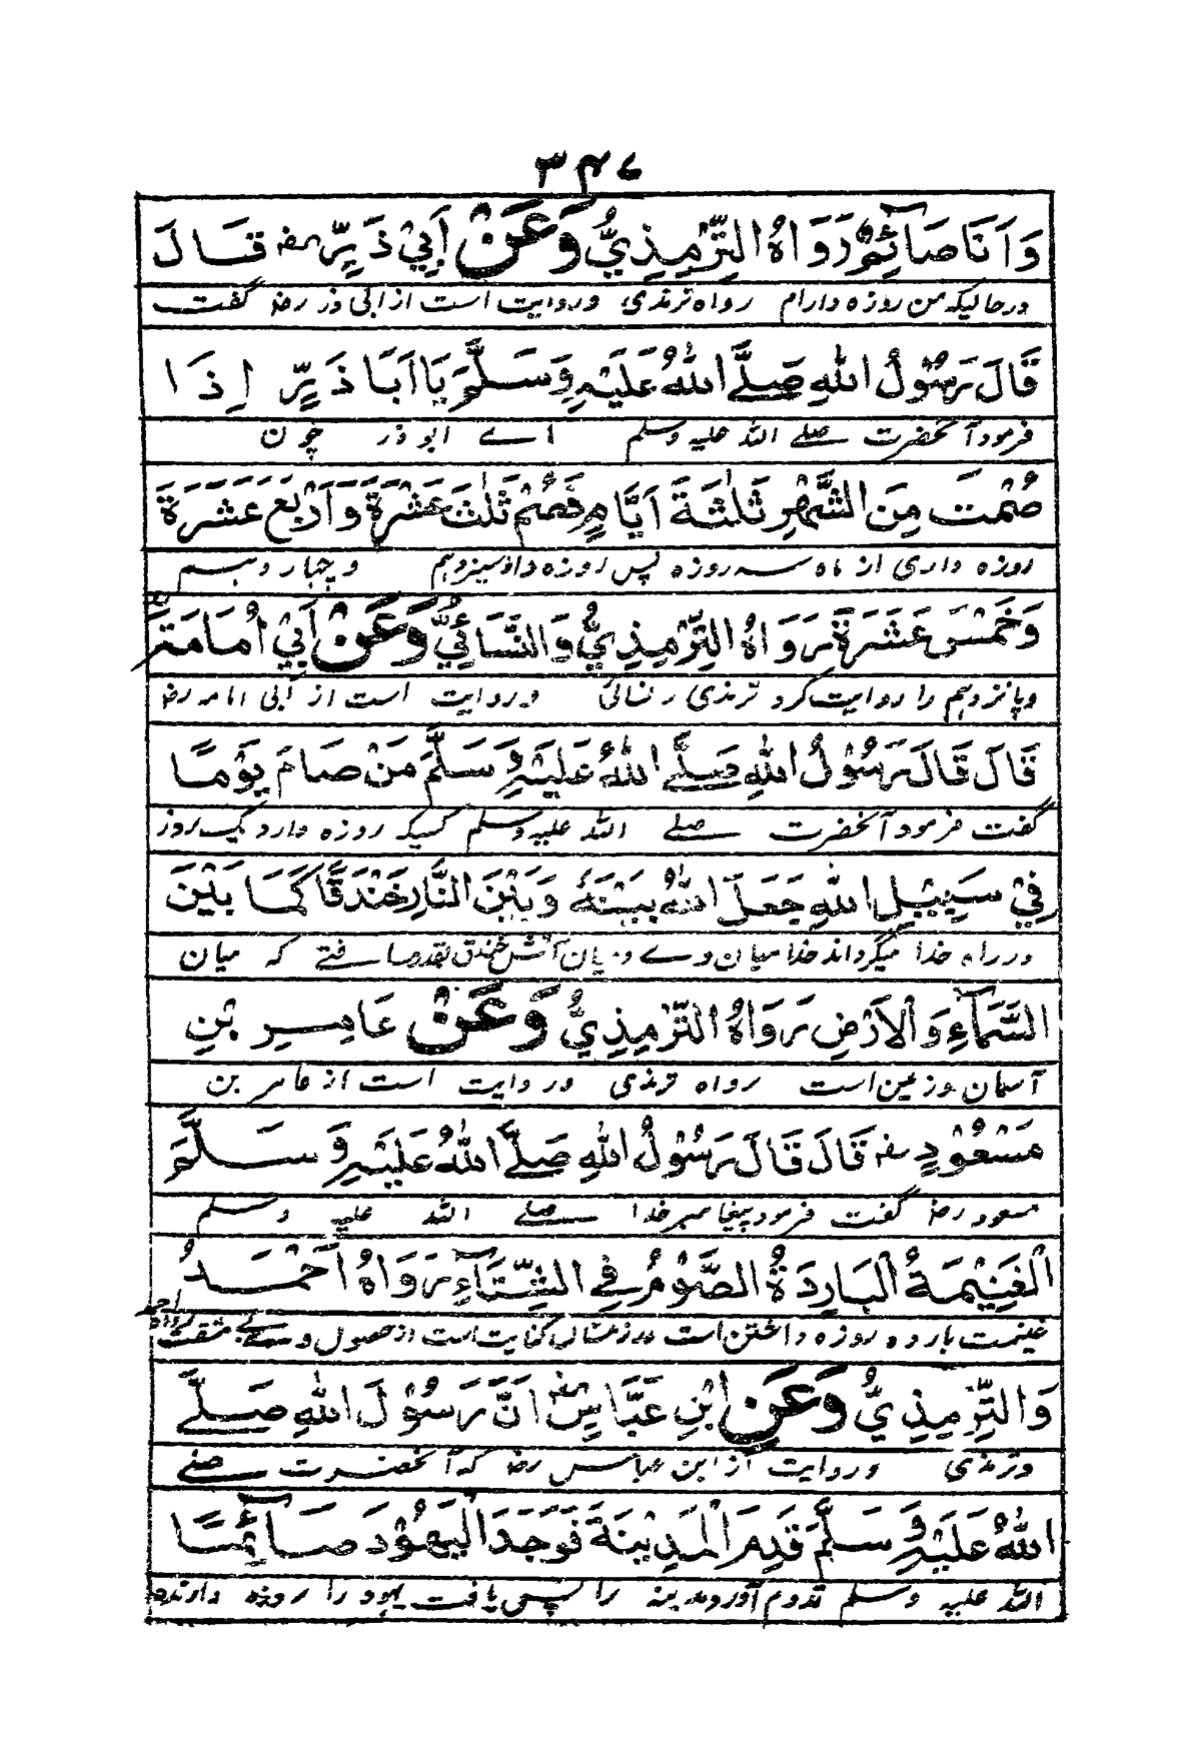 ٣٤٧
وَاَنَا صَآئِمٌ رَوَاهُ التِّرْمِذِيُّ وَعَنْ اَبِيْ ذَرٍّ رضـ قَالَ
درحالیکه من روزه دارام رواه ترمذی وروایت است از ابی ذر رضـ گفت
قَالَ رَسُوْلُ اللهِ صَلَّے اللهُ عَلَيْهِ وَسَلَّمَ يَا اَبَا ذَرٍّ اِذَا
فرمود آنحضرت صلے الله علیه وسلم اے ابوذر چون
صُمْتَ مِنَ الشَّهْرِ ثَلٰثَةَ اَيَّامٍ فَصُمْ ثَلٰثَ عَشْرَةَ وَاَرْبَعَ عَشَرَةَ
روزه داری از ماه سه روزه پس روزه دار سیزدهم و چهاردهم
وَخَمْسَ عَشَرَةَ رَوَاهُ التِّرْمِذِيُّ وَالنَّسَائِيُّ وَعَنْ اَبِيْ اُمَامَةَ رضـ
وپانزدهم را روایت کرد ترمذی و نسائی وروایت است از ابی امامه رضـ
قَالَ قَالَ رَسُوْلُ اللهِ صَلَّے اللهُ عَلَيْهِ وَسَلَّمَ مَنْ صَامَ يَوْمًا
گفت فرمود آنحضرت صلے الله علیه وسلم کسیکه روزه دارد یک روز
فِيْ سَبِيْلِ اللهِ جَعَلَ اللهُ بَيْنَهٗ وَبَيْنَ النَّارِ خَنْدَقًا كَمَا بَيْنَ
در راه خدا میگرداند خدا میان وے و میان آتش خندق بقدر مسافتے که میان
السَّمَآءِ وَالْاَرْضِ رَوَاهُ التِّرْمِذِيُّ وَعَنْ عَامِرِ بْنِ
آسمان وزمین است رواه ترمذی وروایت است از عامر بن
مَسْعُوْدٍ رضـ قَالَ قَالَ رَسُوْلُ اللهِ صَلَّے اللهُ عَلَيْهِ وَسَلَّمَ
مسعود رضـ گفت فرمود پیغامبر خدا صلے الله علیه وسلم
اَلْغَنِيْمَةُ الْبَارِدَةُ الصَّوْمُ فِي الشِّتَآءِ رَوَاهُ اَحْمَدُ
غنیمت بارده روزه داشتن است در زمستان کنایت است از حصول وے بے مشقت رواه احمد
وَالتِّرْمِذِيُّ وَعَنِ ابْنِ عَبَّاسٍ رضـ اَنَّ رَسُوْلَ اللهِ صَلَّے
وترمذی وروایت از ابن عباس رضـ که آنحضرت صلے
اللهُ عَلَيْهِ وَسَلَّمَ قَدِمَ الْمَدِيْنَةَ فَوَجَدَ الْيَهُوْدَ صَآئِمًا
الله علیه وسلم قدوم آورد مدینه را پس یافت یهود را روزه دارنده